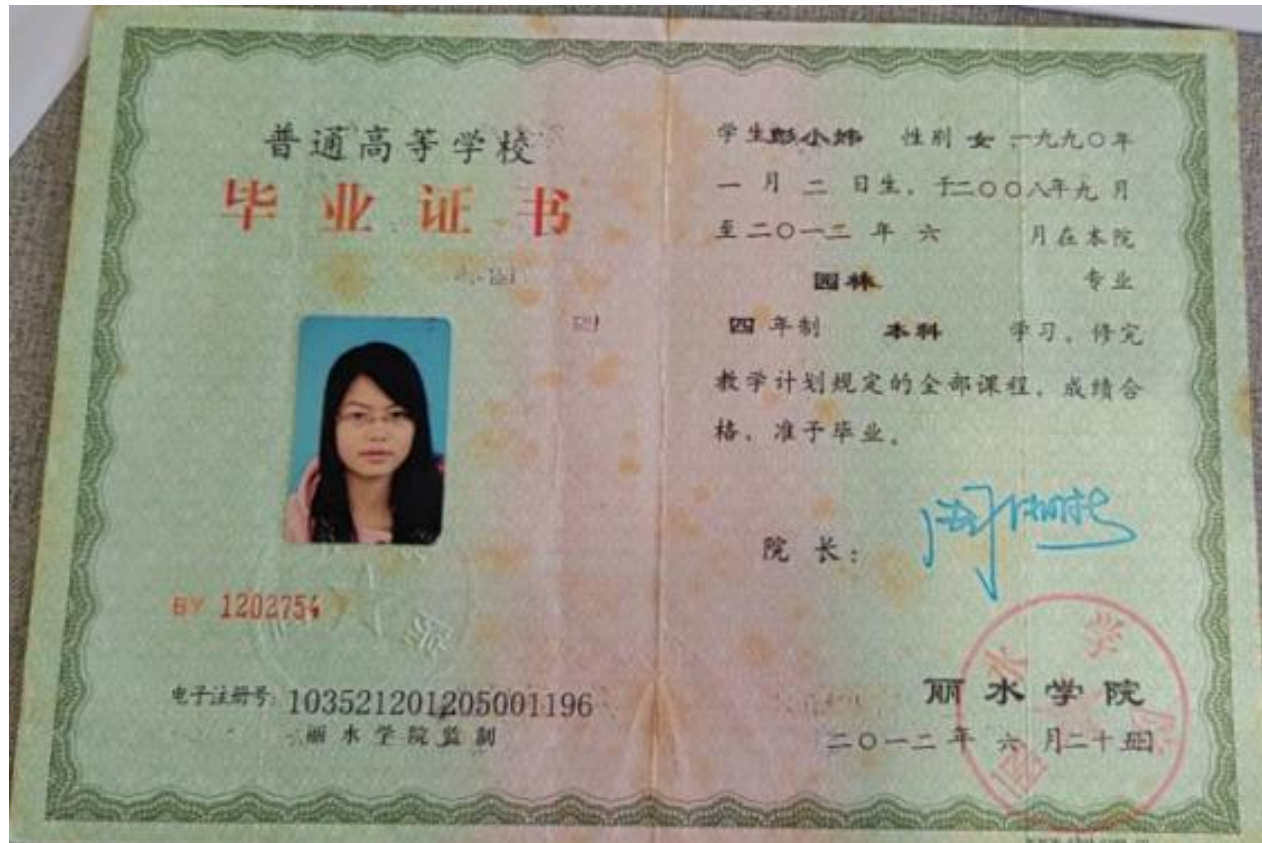 普通高等学校
毕业证书
BY 1202754
电子注册号: 103521201205001196
丽水学院监制
学生彭小炜 性别 女，一九九〇年
一月二日生，于二〇〇八年九月
至二〇一二年六 月在本院
园林 专业
四年制 本科 学习，修完
教学计划规定的全部课程，成绩合
格，准予毕业。
院长：
丽水学院
二〇一二年六月二十日